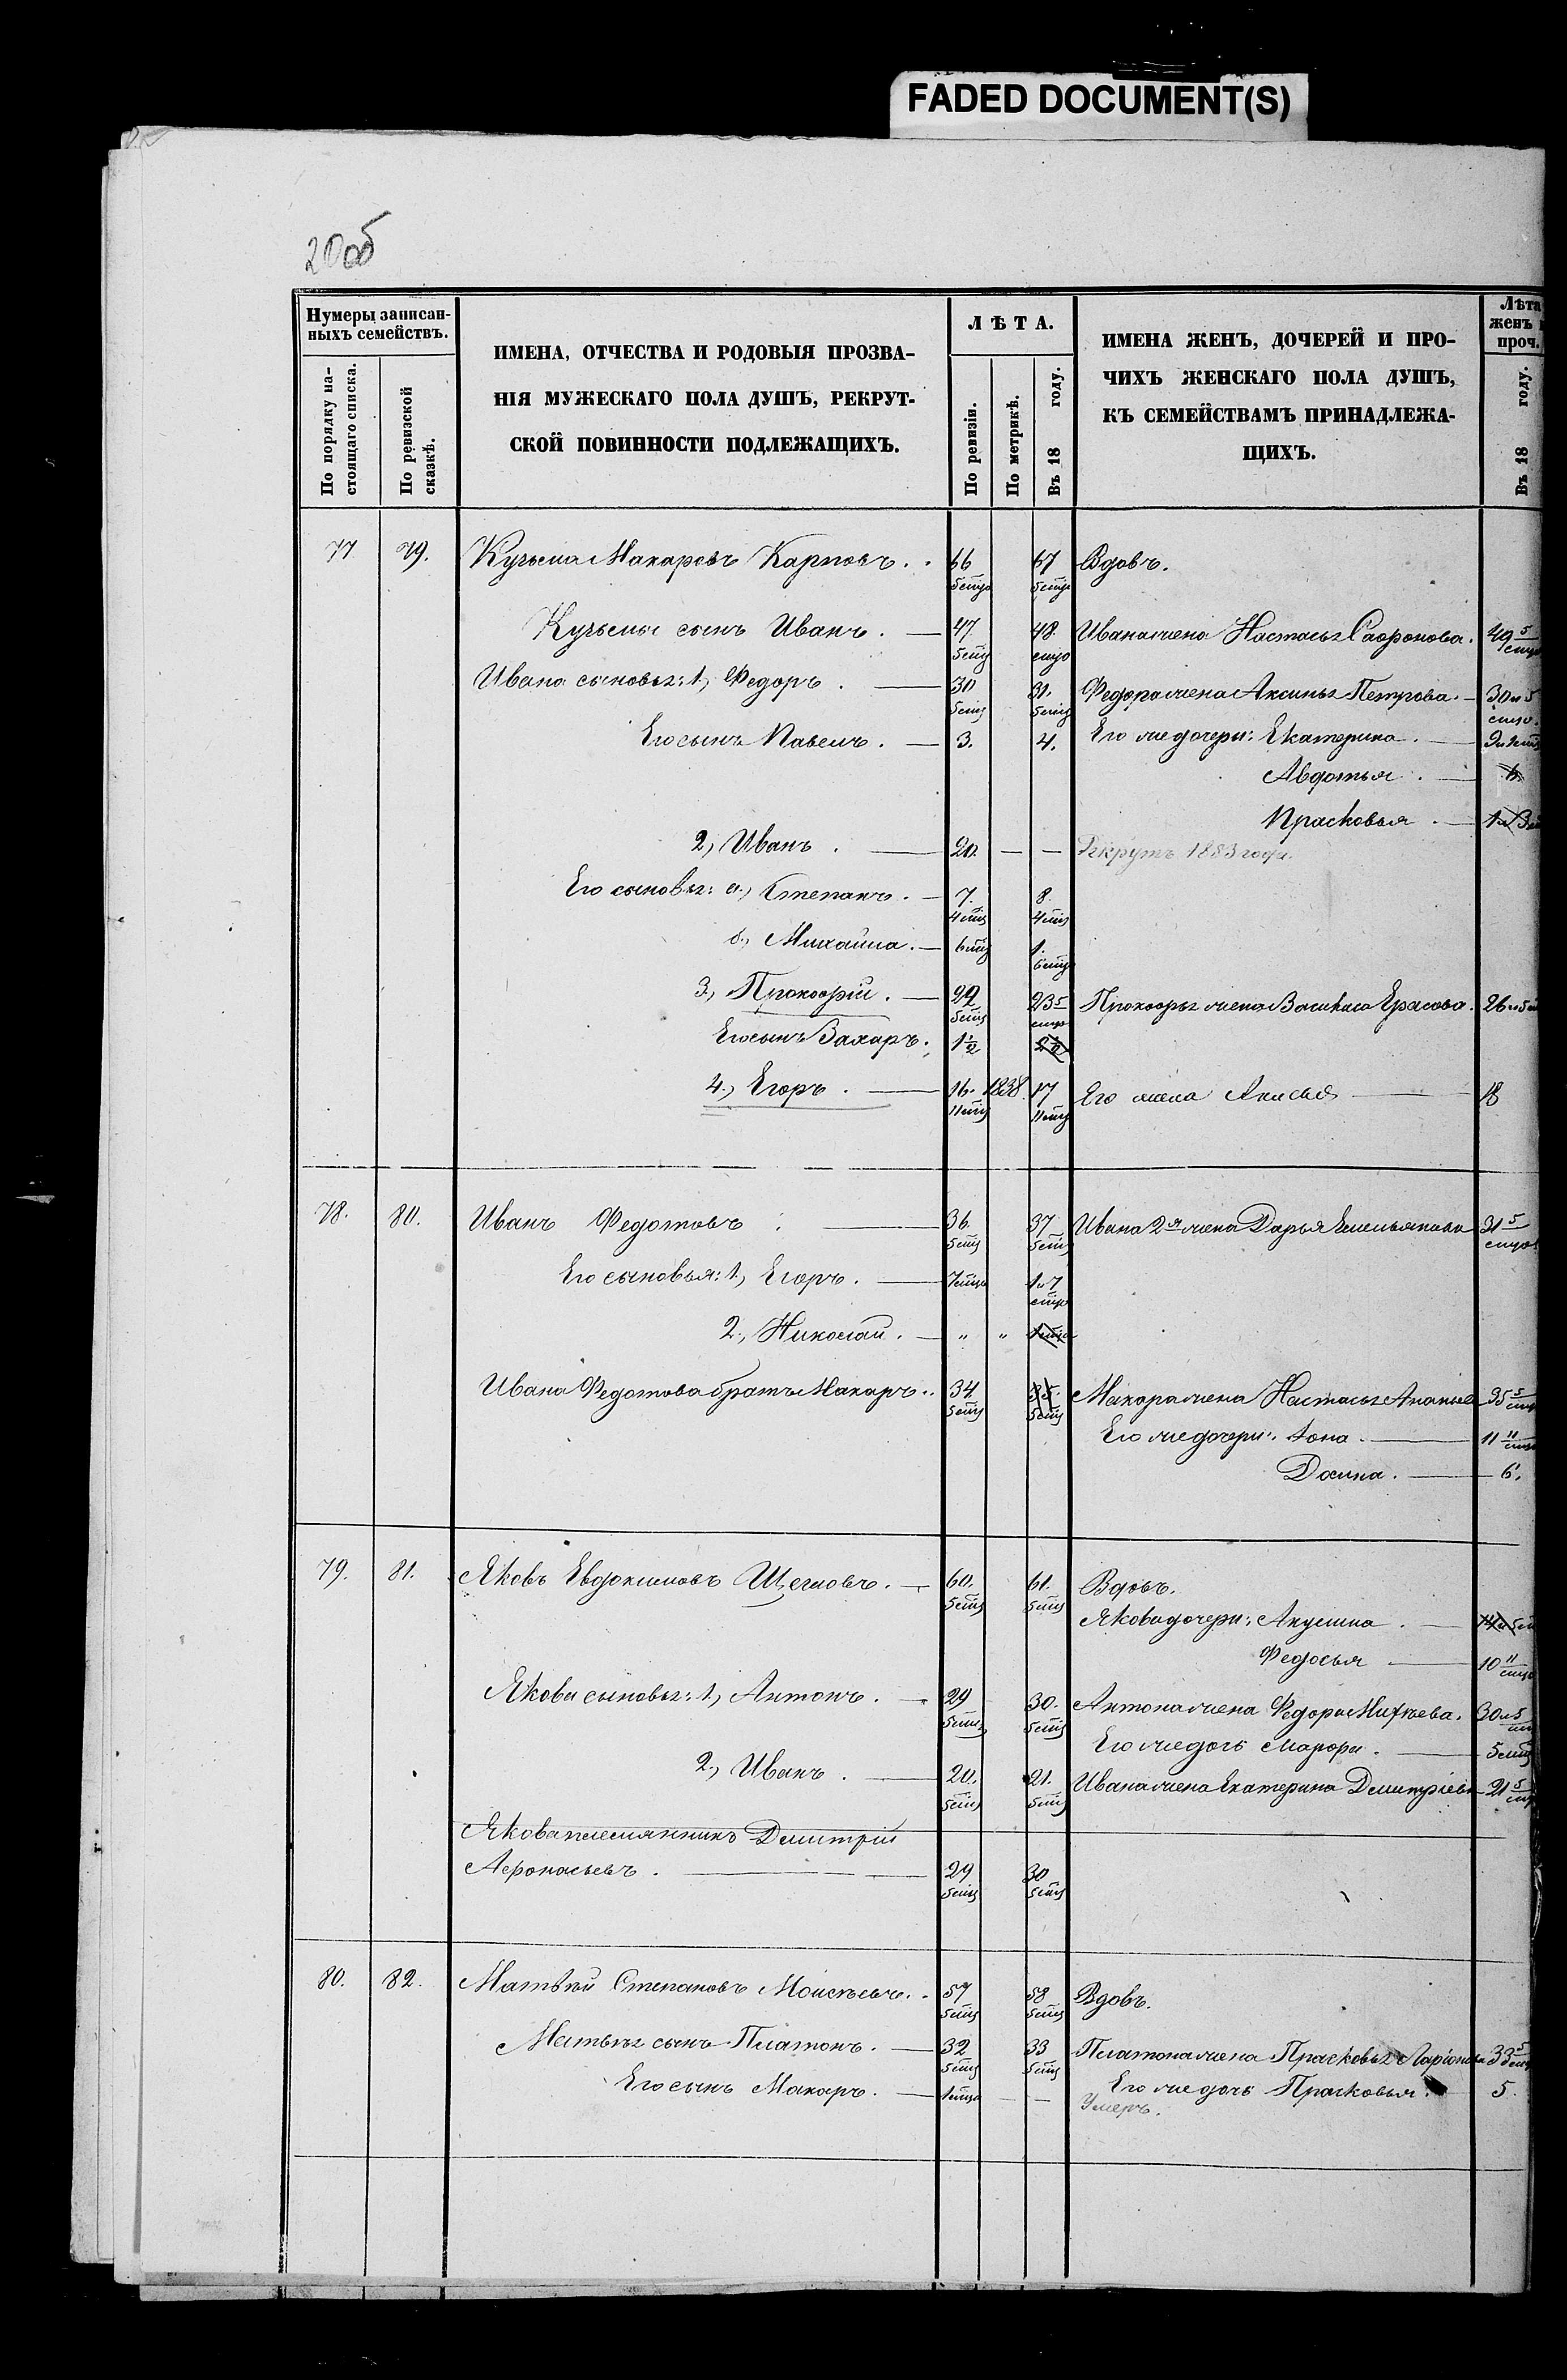 FADED DOCUMENT(S)
20об
Нумеры записан-
ныхъ семействъ.
По порядку на-
стоящаго списка.
По ревизской
сказкѣ.
ИМЕНА, ОТЧЕСТВА И РОДОВЫЯ ПРОЗВА-
НІЯ МУЖЕСКАГО ПОЛА ДУШЪ, РЕКРУТ-
СКОЙ ПОВИННОСТИ ПОДЛЕЖАЩИХЪ.
ЛѢТА.
По ревизіи.
По метрикѣ.
Въ 18 году.
ИМЕНА ЖЕНЪ, ДОЧЕРЕЙ И ПРО-
ЧИХЪ ЖЕНСКАГО ПОЛА ДУШЪ,
КЪ СЕМЕЙСТВАМЪ ПРИНАДЛЕЖА-
ЩИХЪ.
Лѣта
женъ
проч.
Въ 18 году.
77 79. Кузьма Макаровъ Карповъ. 66 67 Вдовъ.
Кузьмы сынъ Иванъ. 47 48. Ивана жена Настасья Сафронова. 49 5
Ивана сыновья: 1, Федоръ. 30 31. Федора жена Аксинья Петрова. 30 и 5
Его сынъ Павелъ. 3. 4. Его же дочери: Екатерина.
Авдотья.
Прасковья.
2, Иванъ. 20. — — Рекрутъ 1853 года.
Его сыновья: а, Степанъ. 7. 8.
б, Михайла. 1.
3, Прокофій. 22 23 5 Прокофья жена Василиса Ерасова. 26 и 5
Его сынъ Захаръ. 1½ 2½
4, Егоръ. 16. 1838. 17 Его жена Анисья 18
78. 80. Иванъ Федотовъ 36. 37 Ивана 2я жена Дарья Емельянова 31 5
Его сыновья: 1, Егоръ. 1 и 7
2, Николай. " "
Ивана Федотова братъ Макаръ. 34 35. Макара жена Настасья Ананьева 35 5
Его же дочери: 11 11
6.
79. 81. Яковъ Евдокимовъ Щегловъ. 60. 61. Вдовъ.
Якова дочери: Акулина.
Федосья 10 11
Якова сыновья: 1, Антонъ. 29 30. Антона жена Федора Михѣева. 30 и 5
Его же дочь Марфа.
2, Иванъ. 20. 21. Ивана жена Екатерина Дмитріева 21 5
Якова племянникъ Дмитрій
Афонасьевъ. 29 30
80. 82. Матвѣй Степановъ Моисѣевъ. 57 58 Вдовъ.
Матвѣя сынъ Платонъ. 32 33 Платона жена Прасковья Ларіонова 33 5
Его сынъ Макаръ. — Его же дочь Прасковья. 5.
Умеръ.